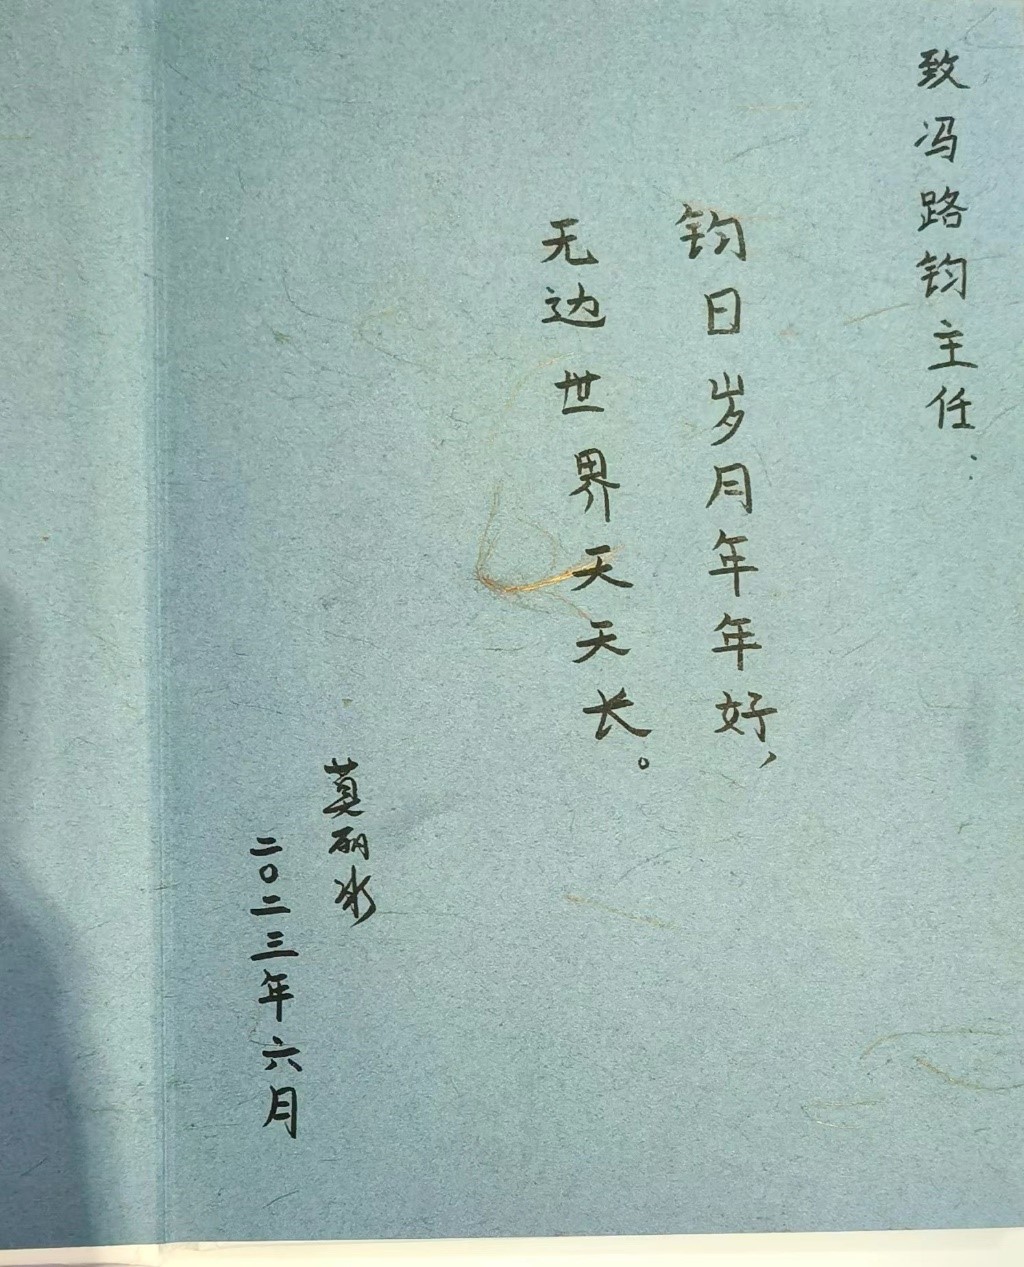 致冯路钧主任：
钧日岁月年年好，
无边世界天天长。
莫丽冰
二〇二三年六月